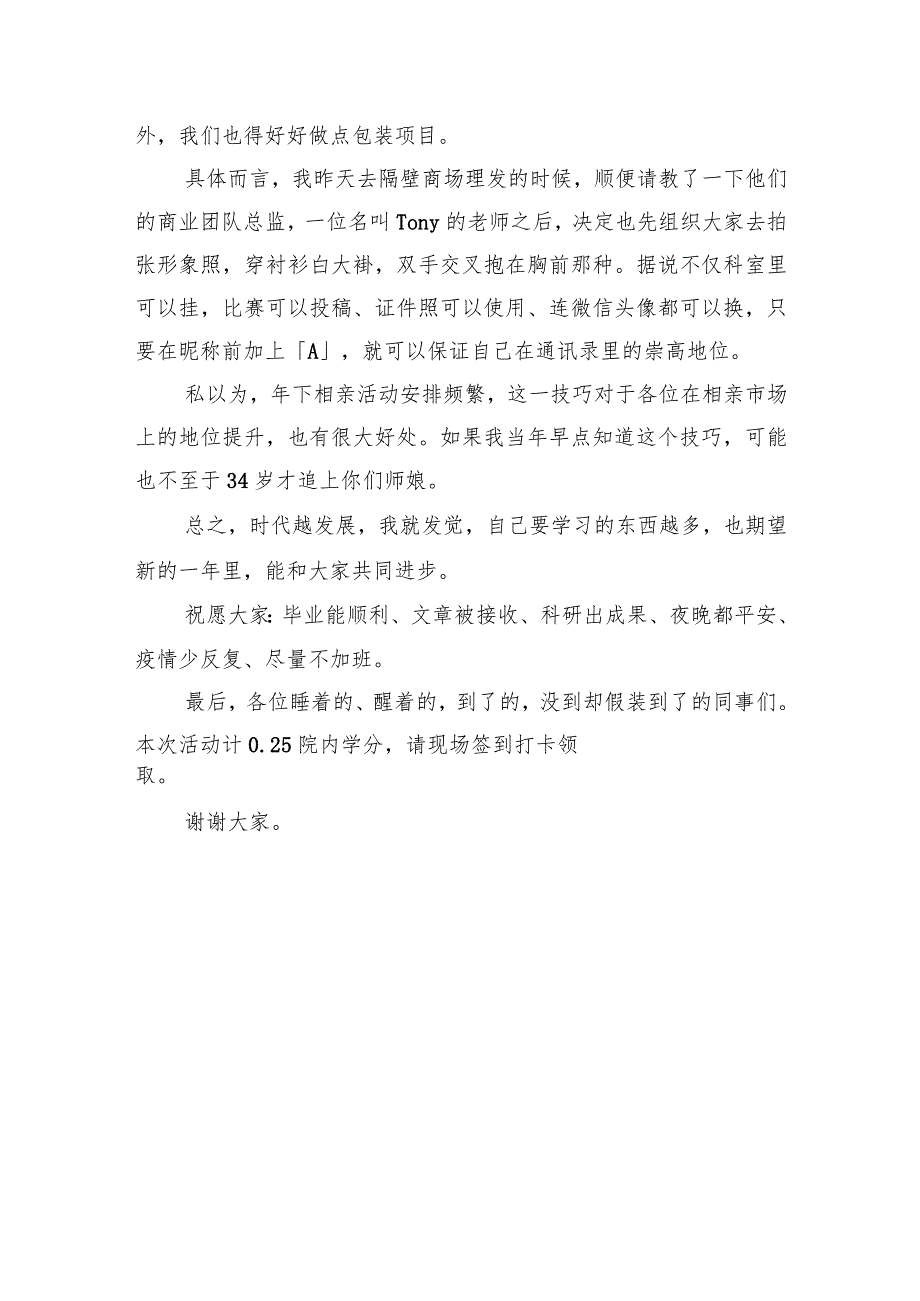 外，我们也得好好做点包装项目。
具体而言，我昨天去隔壁商场理发的时候，顺便请教了一下他们
的商业团队总监，一位名叫 Tony 的老师之后，决定也先组织大家去拍
张形象照，穿衬衫白大褂，双手交叉抱在胸前那种。据说不仅科室里
可以挂，比赛可以投稿、证件照可以使用、连微信头像都可以换，只
要在昵称前加上「A」，就可以保证自己在通讯录里的崇高地位。
私以为，年下相亲活动安排频繁，这一技巧对于各位在相亲市场
上的地位提升，也有很大好处。如果我当年早点知道这个技巧，可能
也不至于 34 岁才追上你们师娘。
总之，时代越发展，我就发觉，自己要学习的东西越多，也期望
新的一年里，能和大家共同进步。
祝愿大家：毕业能顺利、文章被接收、科研出成果、夜晚都平安、
疫情少反复、尽量不加班。
最后，各位睡着的、醒着的，到了的，没到却假装到了的同事们。
本次活动计 0.25 院内学分，请现场签到打卡领
取。
谢谢大家。